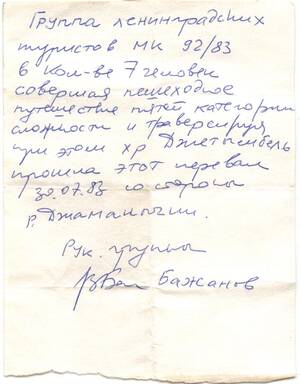 Группа ленинградских
туристов МК 92/83
в кол-ве 7 человек
совершая пешеходное
путешествие пятой категории
сложности и траверсируя
при этом хр Джетымбель
прошла этот перевал
30.07.83 со стороны
р. Джаманычки.
Рук. группы
Бажанов